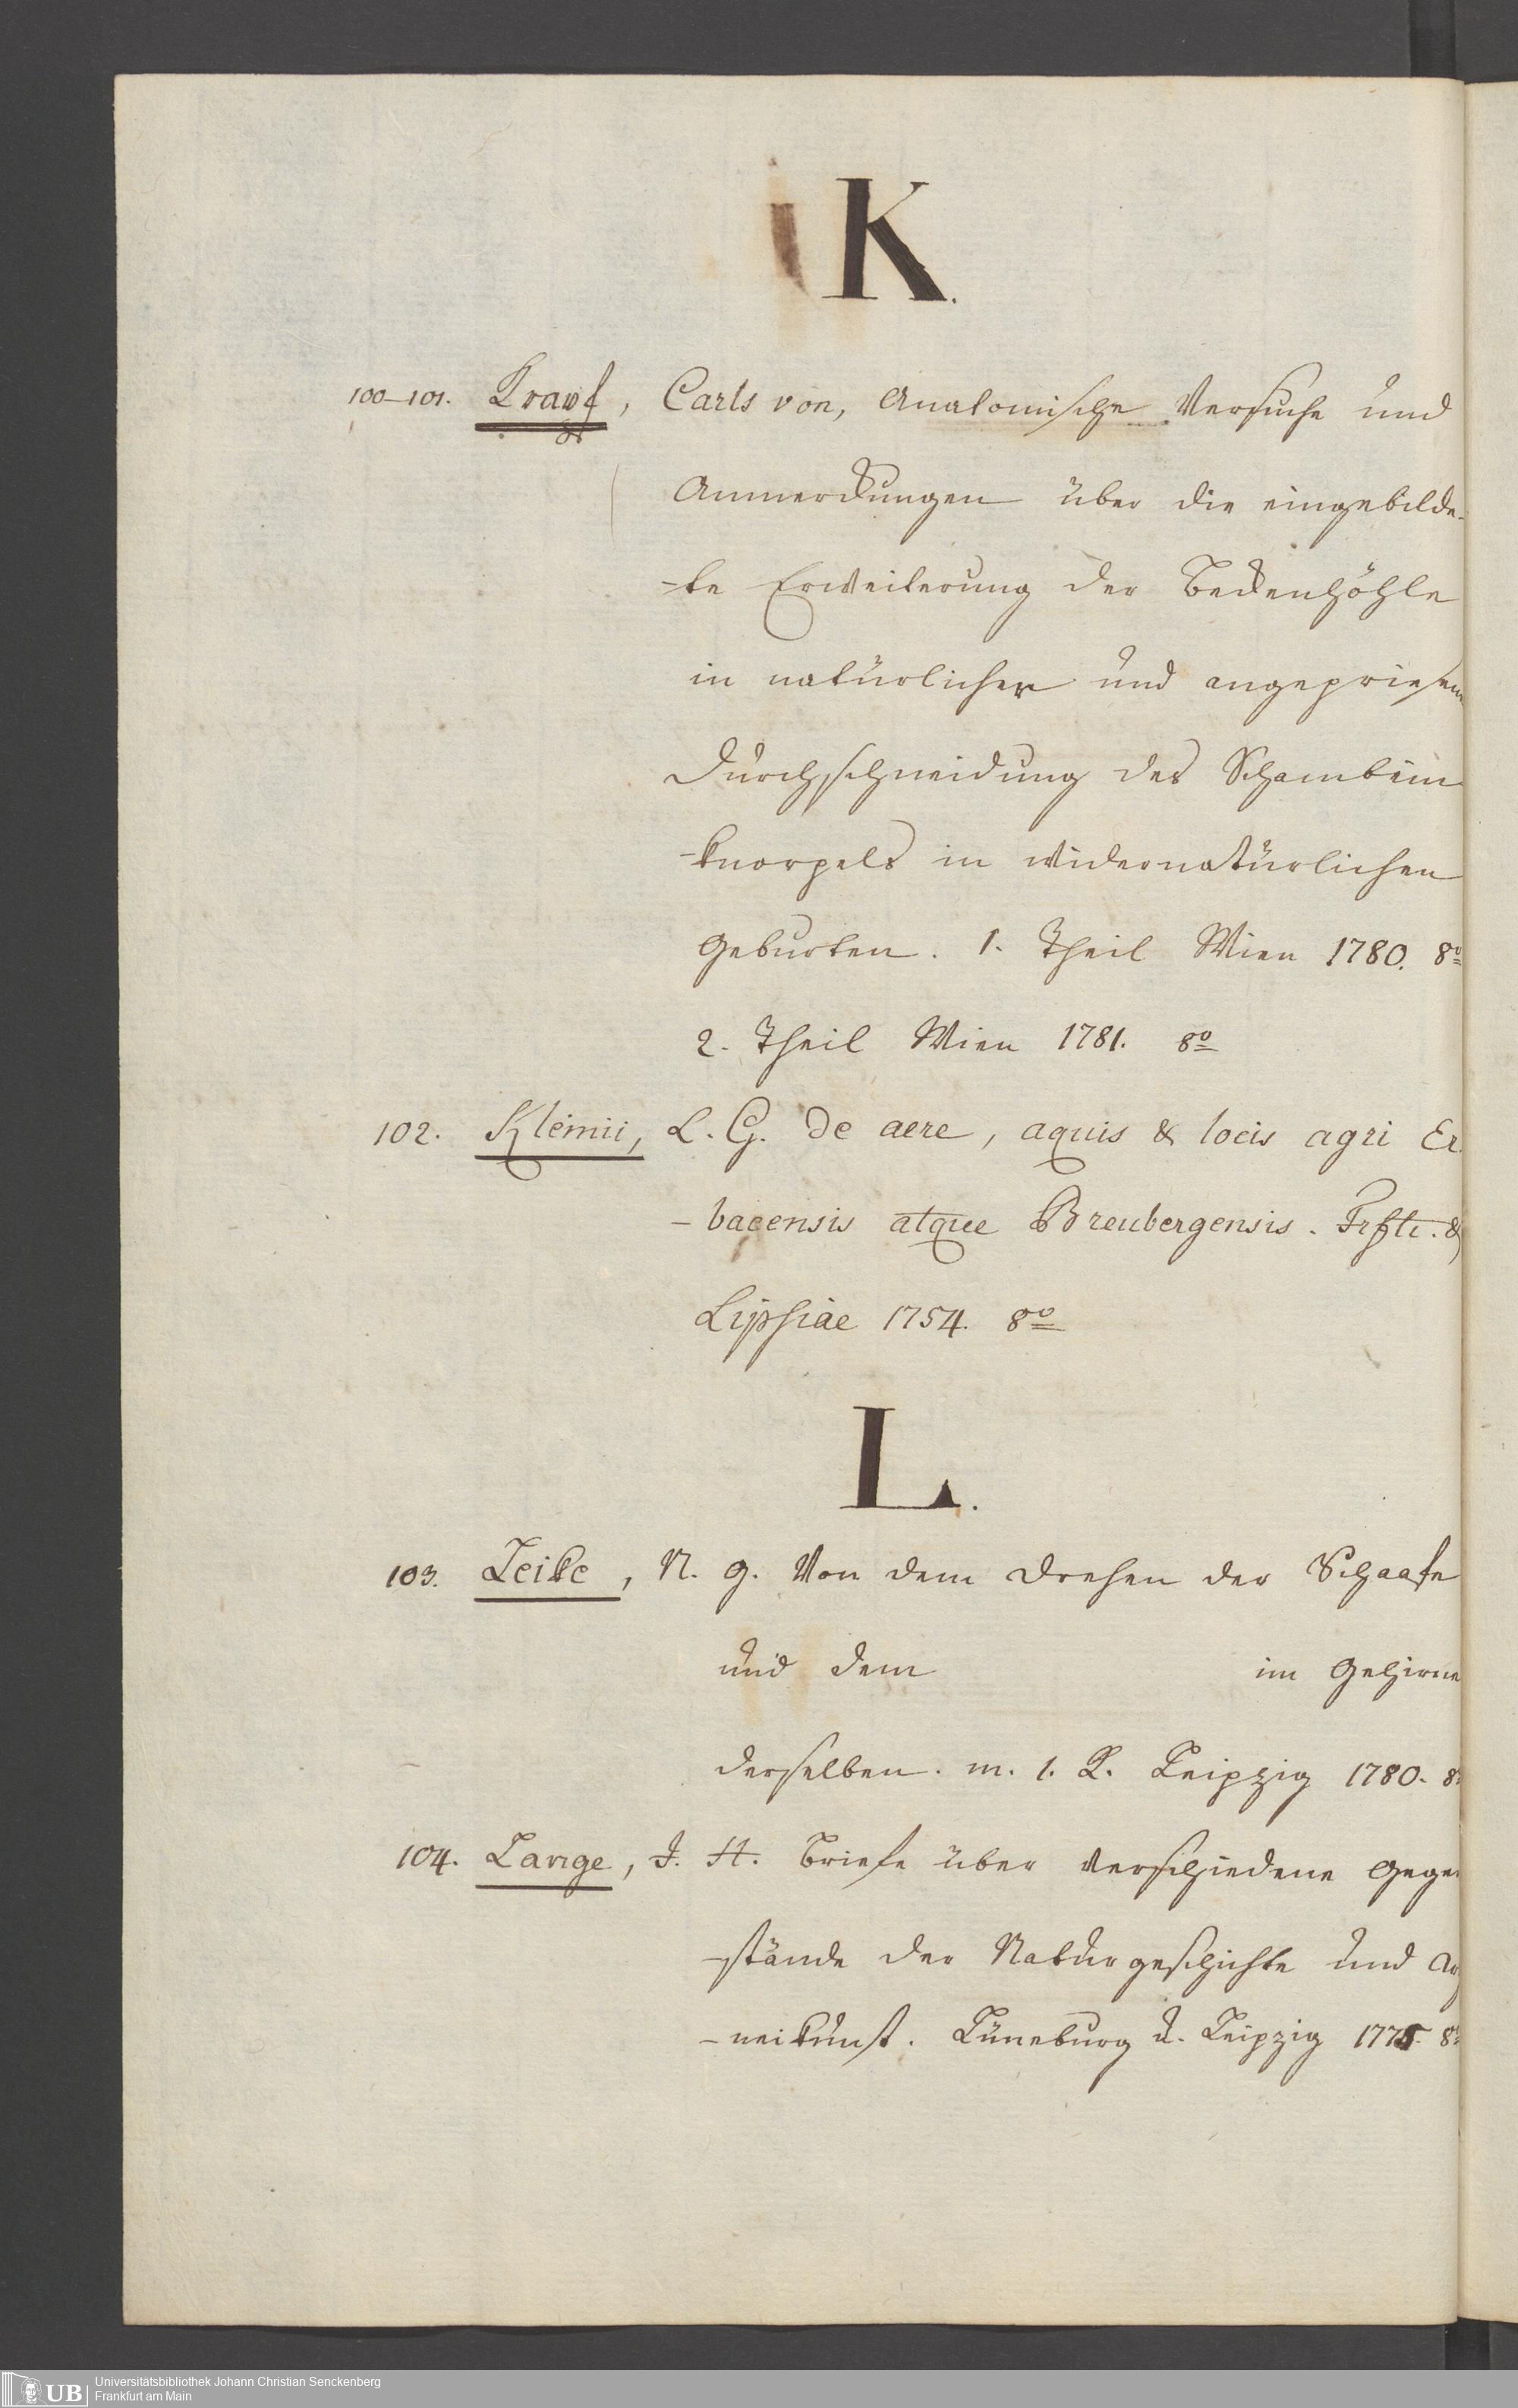 K.
100–101. Krapf, Carls von, Anatomische Versuche und
Anmerckungen über die eingebilde-
-te Erweiterung der Beckenhöhle
in natürlicher und angepriesene
Durchschneidung des Schambein
-knorpels in widernatürlichen
Geburten. 1. Theil Wien 1780. 8º
2. Theil Wien 1781. 8º
102. Klemii, L. G. De aere, aquis & locis agri Er
-bacensis atque Breubergensis. Frfti. &
Lipsiae 1754. 8º
L.
103. Leike, N. G. Von dem Drehen der Schaafe
und dem im Gehirne
derselben. m. 1. K. Leipzig 1780. 8
104. Lange, J. H. Briefe über verschiedene Gegen
-stände der Naturgeschichte und Arz
-neikunst. Lüneburg u. Leipzig 1775. 8
UB Universitätsbibliothek Johann Christian Senckenberg
Frankfurt am Main